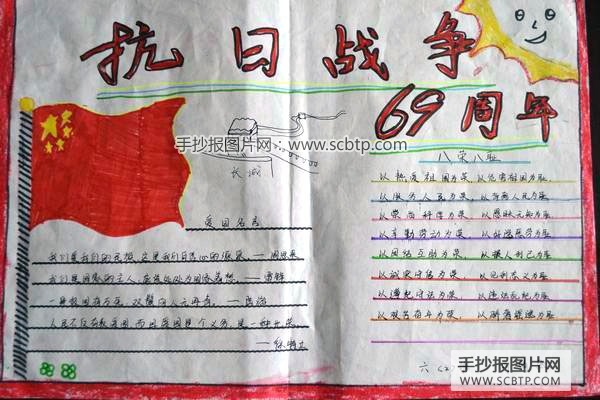 抗日战争
69周年
手抄报图片网:www.scbtp.com
长城
爱国名言
我们爱我们的民族,这是我们自信心的源泉。——周恩来
我们是国家的主人,应该处处为国家着想。——雷锋
一身报国有万死,双鬓向人无再青。——陆游
人民不仅有权爱国,而且爱国是个义务,是一种光荣。
——徐特立
八荣八耻
以热爱祖国为荣,以危害祖国为耻
以服务人民为荣,以背离人民为耻
以崇尚科学为荣,以愚昧无知为耻
以辛勤劳动为荣,以好逸恶劳为耻
以团结互助为荣,以损人利己为耻
以诚实守信为荣,以见利忘义为耻
以遵纪守法为荣,以违法乱纪为耻
以艰苦奋斗为荣,以骄奢淫逸为耻
六(2)
手抄报图片网
WWW.SCBTP.COM